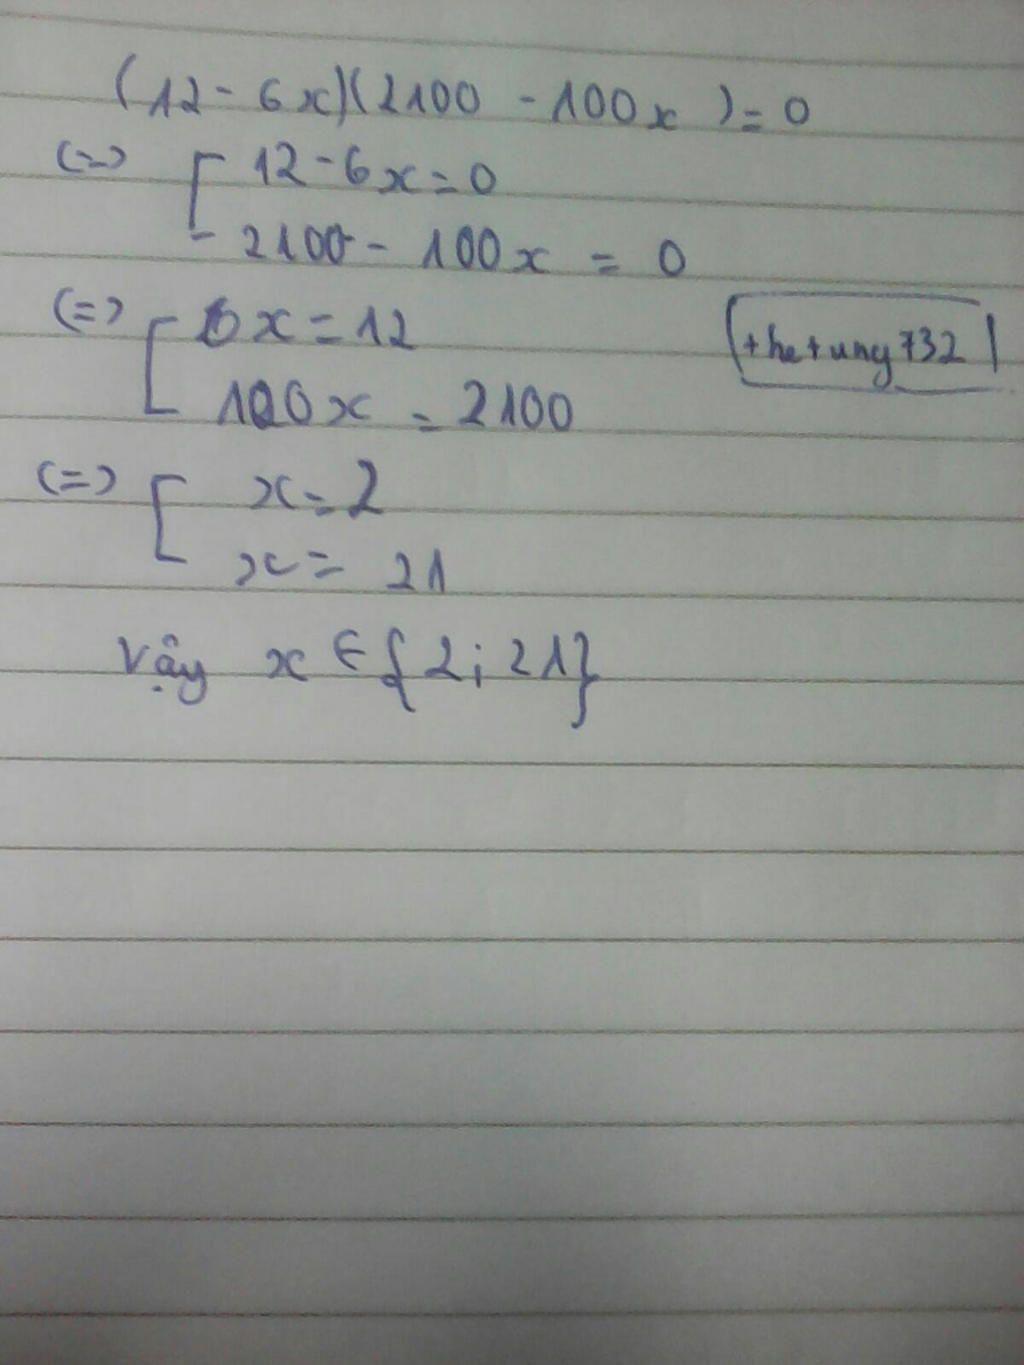 (12 - 6x)(2100 - 100x) = 0
(=) [ 12 - 6x = 0
2100 - 100x = 0
(=) [ 6x = 12
100x = 2100
thetung732
(=) [ x = 2
x = 21
Vậy x ∈ {2; 21}